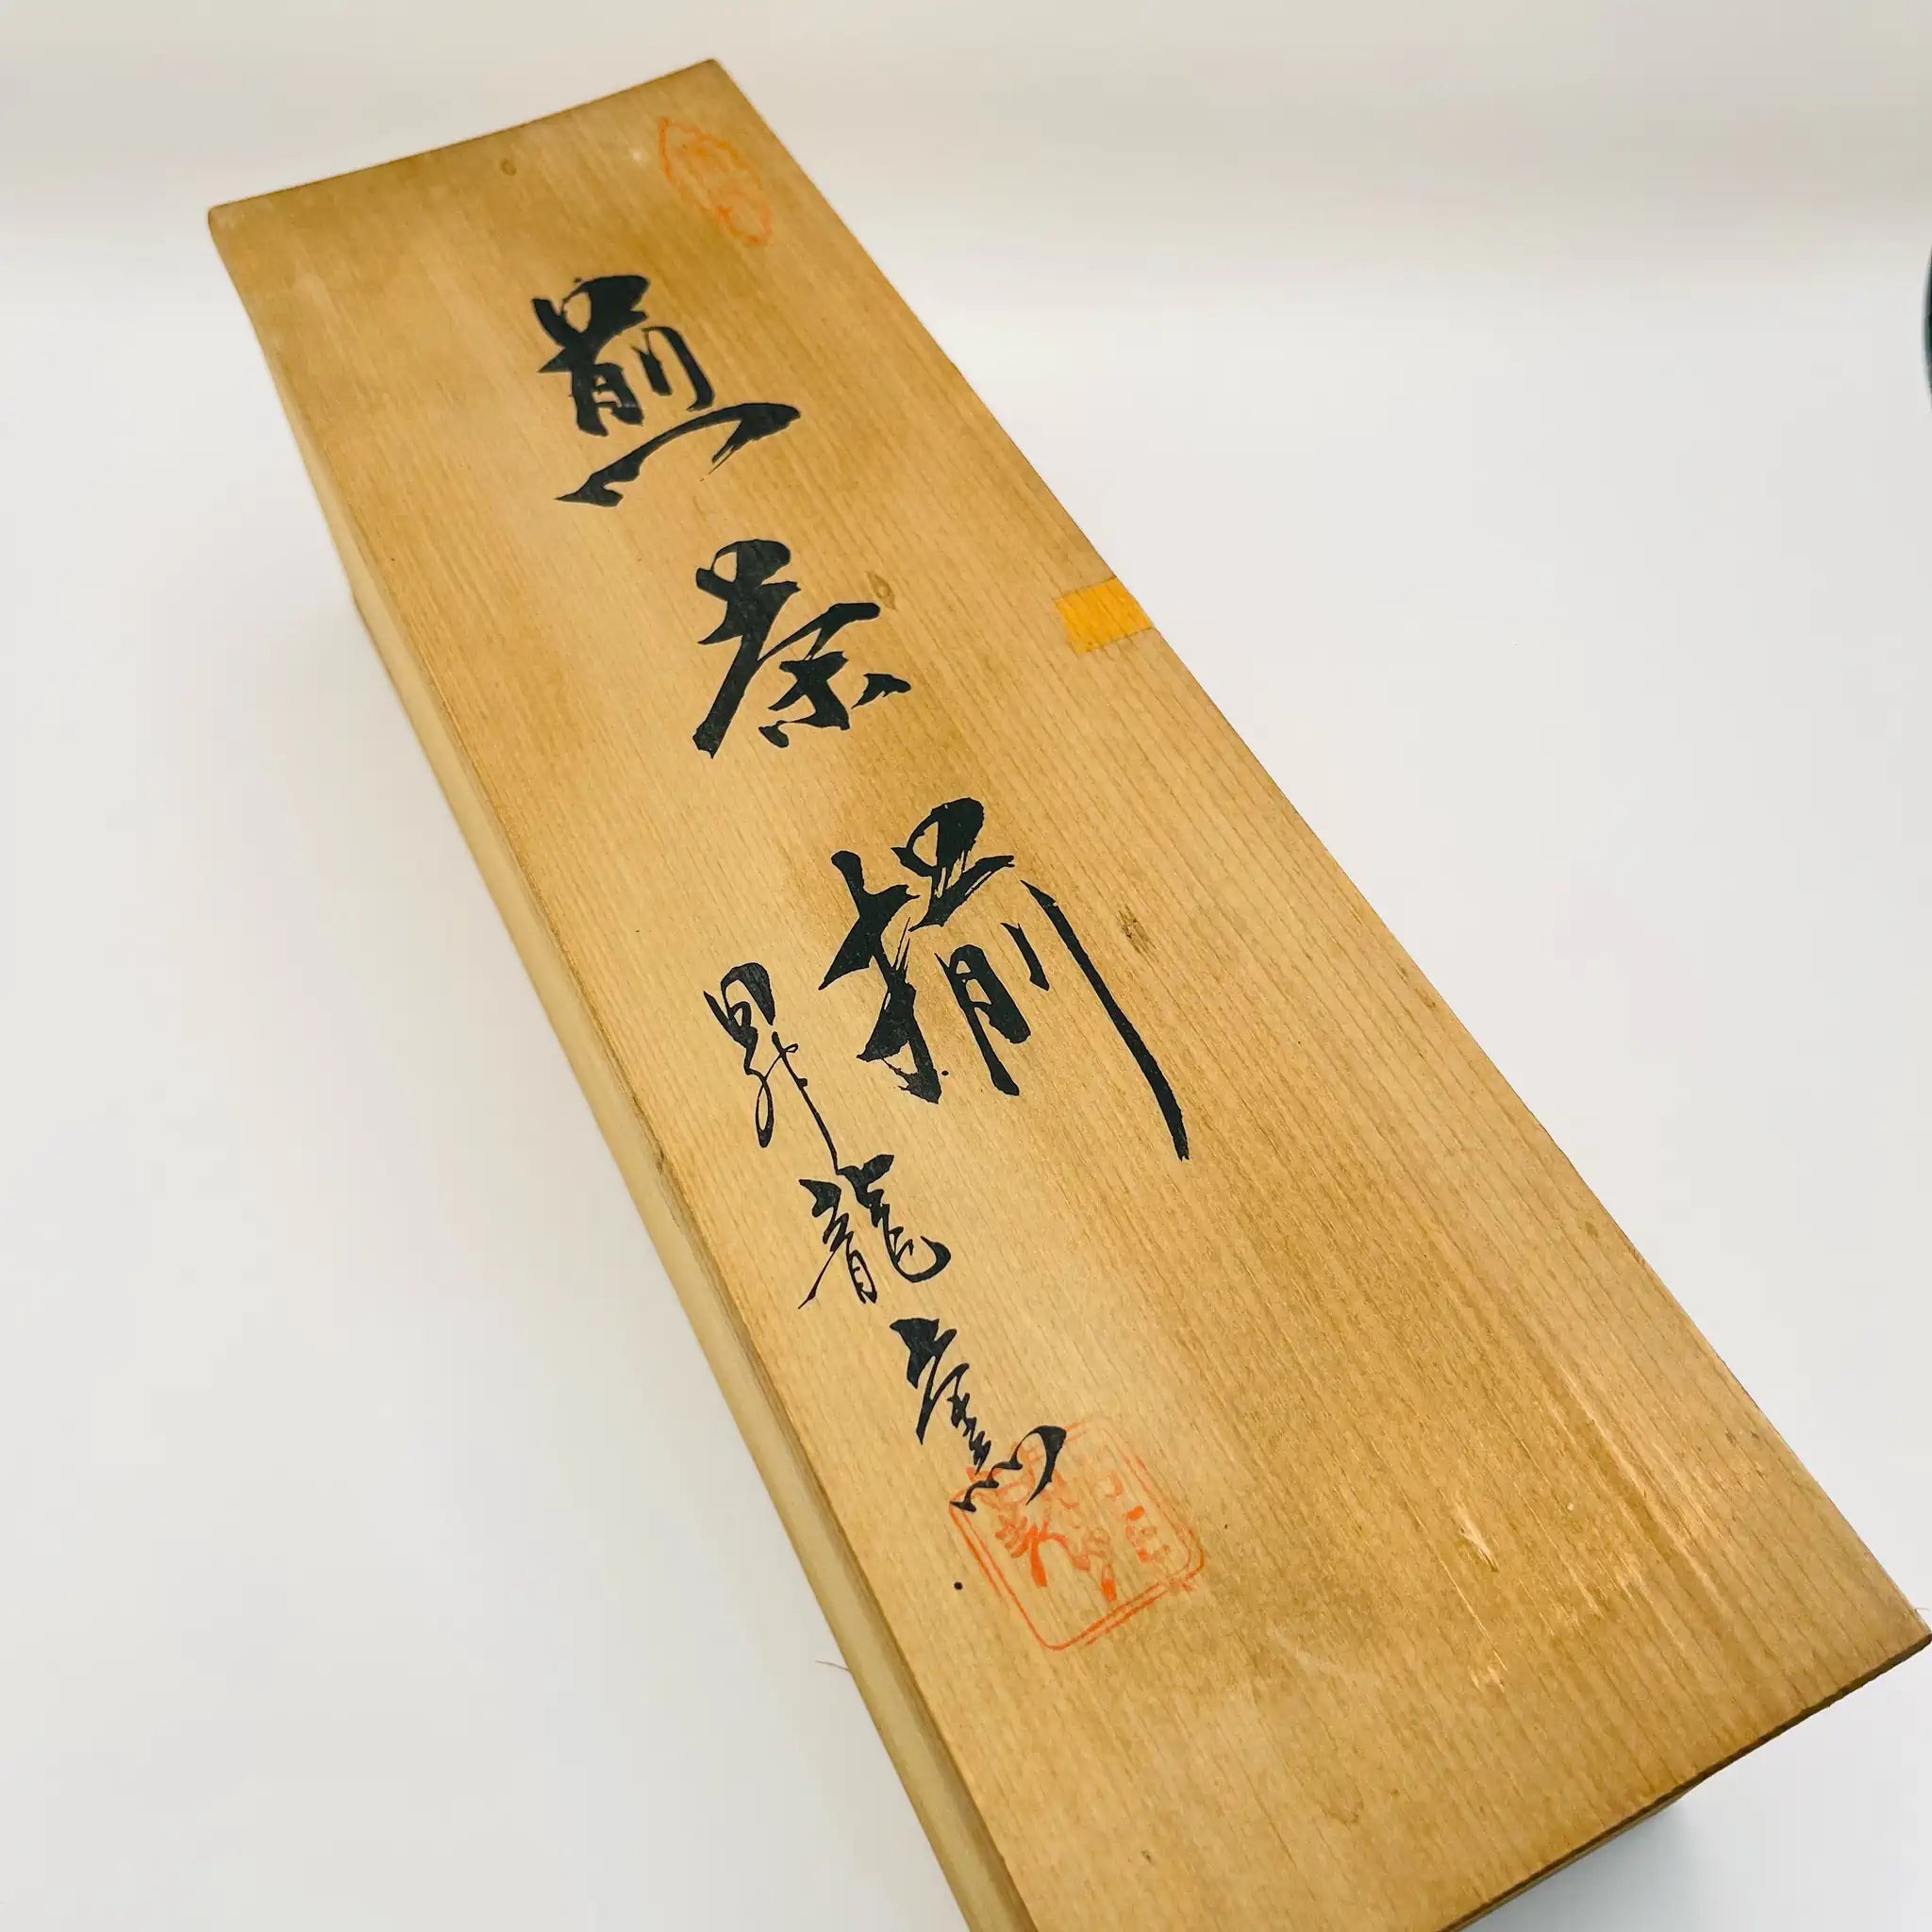 煎茶揃
昇龍窯